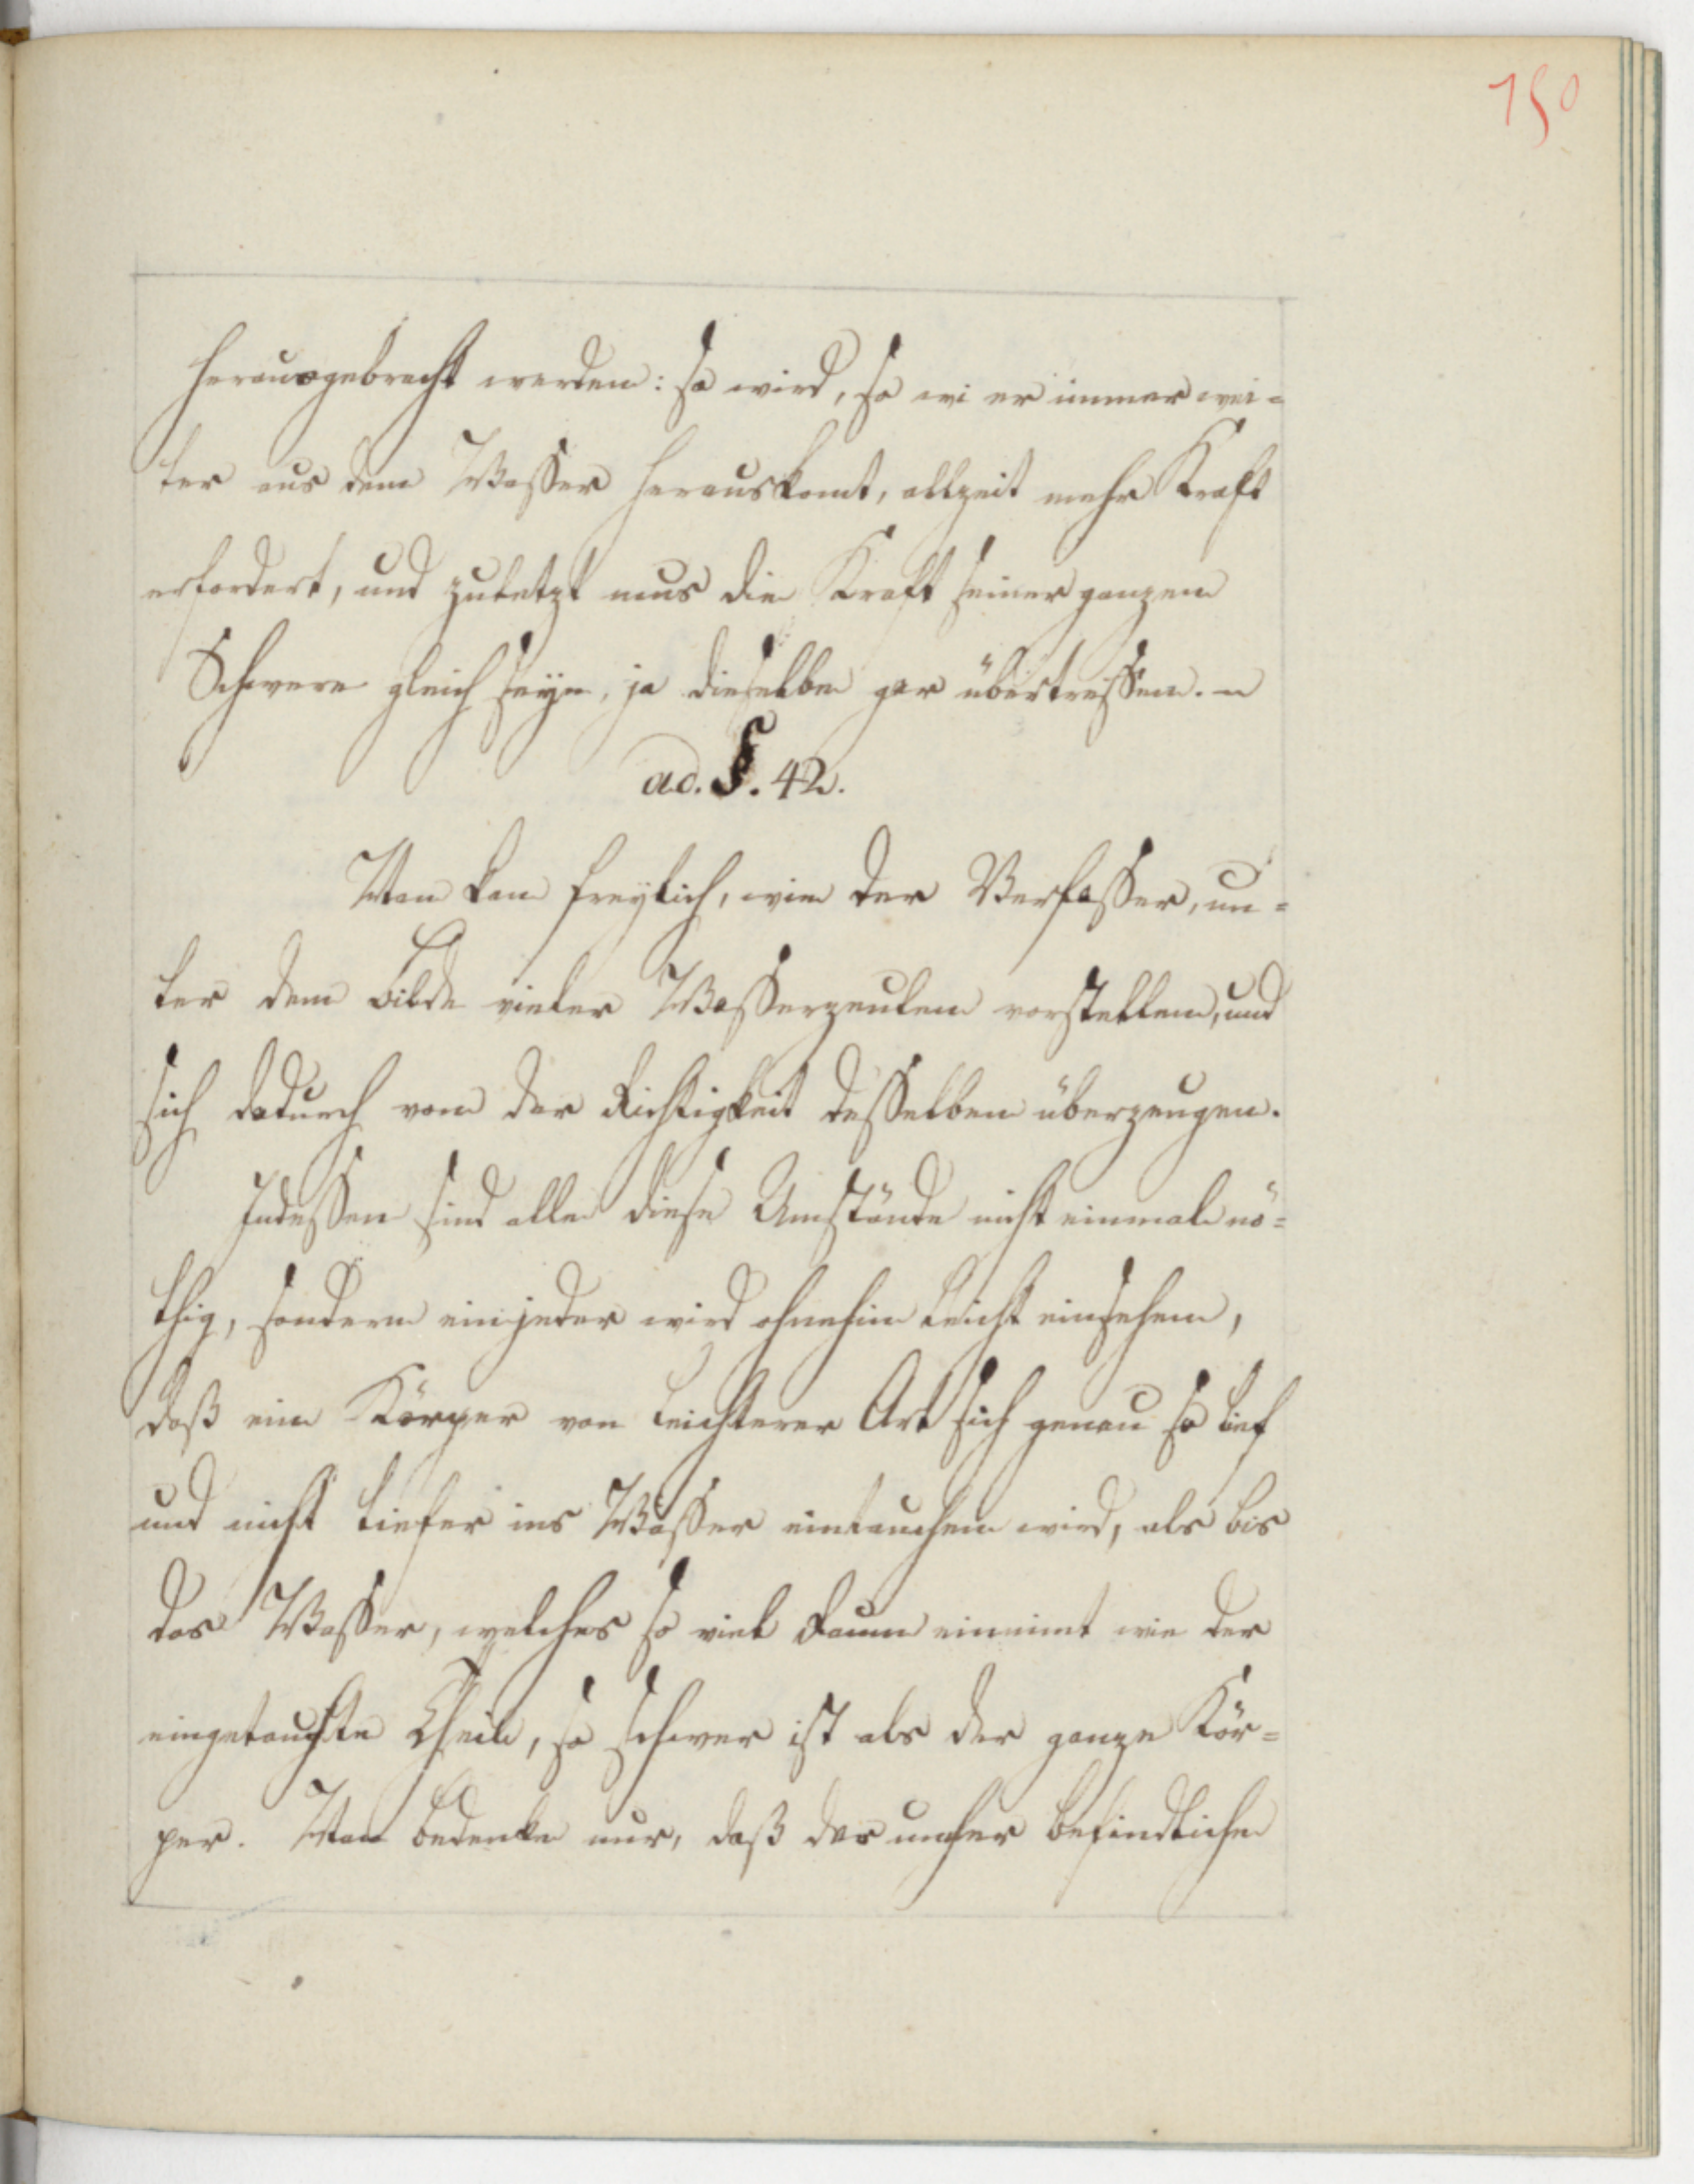 150
herausgebracht werden: so wird, so wi er immer wei=
ter aus dem Wasser herauskomt, allzeit mehr Kraft
erfordert, und zuletzt mus die Kraft seiner ganzen
Schwere gleich seyn, ja dieselbe gar übertreffen.
ad. §. 42.
Man kan freylich, wie der Verfasser, un=
ter dem Bilde vieler Wasserzeulen vorstellen, und
sich dadurch von der Richtigkeit desselben überzeugen.
Indessen sind alle diese Umstände nicht einmal nö=
thig, sondern ein jeder wird ohnehin leicht einsehen,
daß ein Körper von leichterer Art sich genau so tief
und nicht tiefer ins Wasser eintauchen wird, als bis
das Wasser, welches so viel Raum einnimt wie der
eingetauchte Theil, so schwer ist als der ganze Kör=
per. Man bedenke nur, daß das umher befindliche